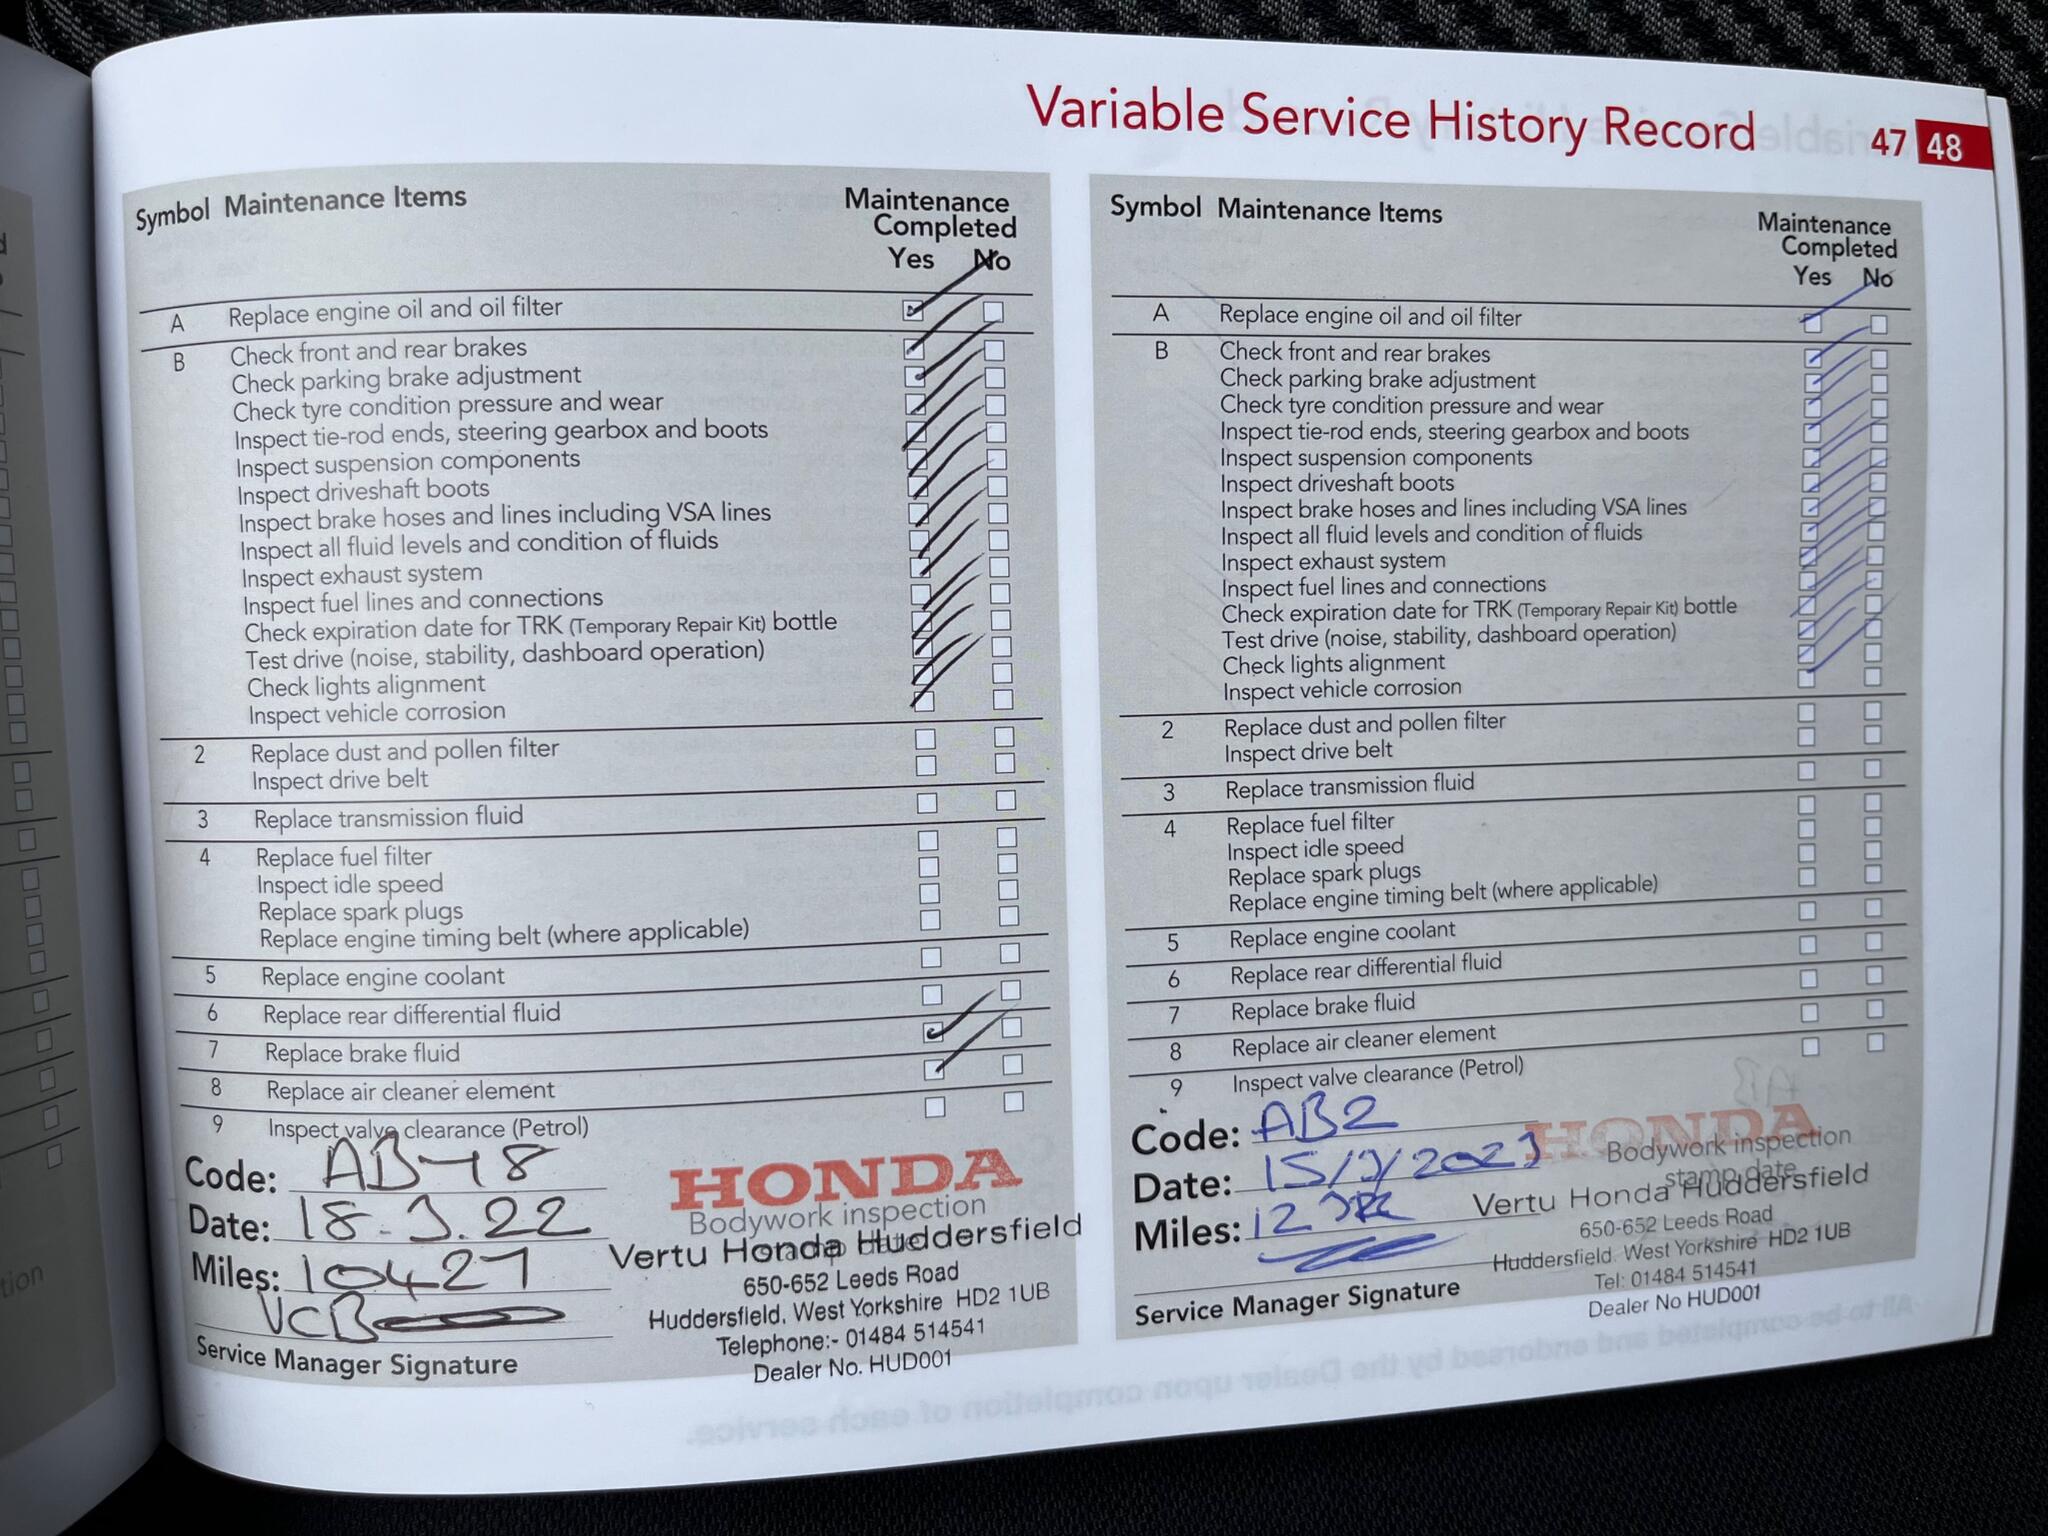 Variable Service History Record 47 48
Symbol Maintenance Items Maintenance Completed
Yes No
A Replace engine oil and oil filter
B Check front and rear brakes
Check parking brake adjustment
Check tyre condition pressure and wear
Inspect tie-rod ends, steering gearbox and boots
Inspect suspension components
Inspect driveshaft boots
Inspect brake hoses and lines including VSA lines
Inspect all fluid levels and condition of fluids
Inspect exhaust system
Inspect fuel lines and connections
Check expiration date for TRK (Temporary Repair Kit) bottle
Test drive (noise, stability, dashboard operation)
Check lights alignment
Inspect vehicle corrosion
2 Replace dust and pollen filter
Inspect drive belt
3 Replace transmission fluid
4 Replace fuel filter
Inspect idle speed
Replace spark plugs
Replace engine timing belt (where applicable)
5 Replace engine coolant
6 Replace rear differential fluid
7 Replace brake fluid
8 Replace air cleaner element
9 Inspect valve clearance (Petrol)
Code: AB-78
Date: 18.3.22
Miles: 10427
VCB
Service Manager Signature
HONDA
Bodywork inspection
stamp date
Vertu Honda Huddersfield
650-652 Leeds Road
Huddersfield, West Yorkshire HD2 1UB
Telephone:- 01484 514541
Dealer No. HUD001
Symbol Maintenance Items Maintenance Completed
Yes No
A Replace engine oil and oil filter
B Check front and rear brakes
Check parking brake adjustment
Check tyre condition pressure and wear
Inspect tie-rod ends, steering gearbox and boots
Inspect suspension components
Inspect driveshaft boots
Inspect brake hoses and lines including VSA lines
Inspect all fluid levels and condition of fluids
Inspect exhaust system
Inspect fuel lines and connections
Check expiration date for TRK (Temporary Repair Kit) bottle
Test drive (noise, stability, dashboard operation)
Check lights alignment
Inspect vehicle corrosion
2 Replace dust and pollen filter
Inspect drive belt
3 Replace transmission fluid
4 Replace fuel filter
Inspect idle speed
Replace spark plugs
Replace engine timing belt (where applicable)
5 Replace engine coolant
6 Replace rear differential fluid
7 Replace brake fluid
8 Replace air cleaner element
9 Inspect valve clearance (Petrol)
Code: AB2
Date: 15/3/2023
Miles:
Service Manager Signature
HONDA
Bodywork inspection
stamp date
Vertu Honda Huddersfield
650-652 Leeds Road
Huddersfield. West Yorkshire HD2 1UB
Tel: 01484 514541
Dealer No HUD001